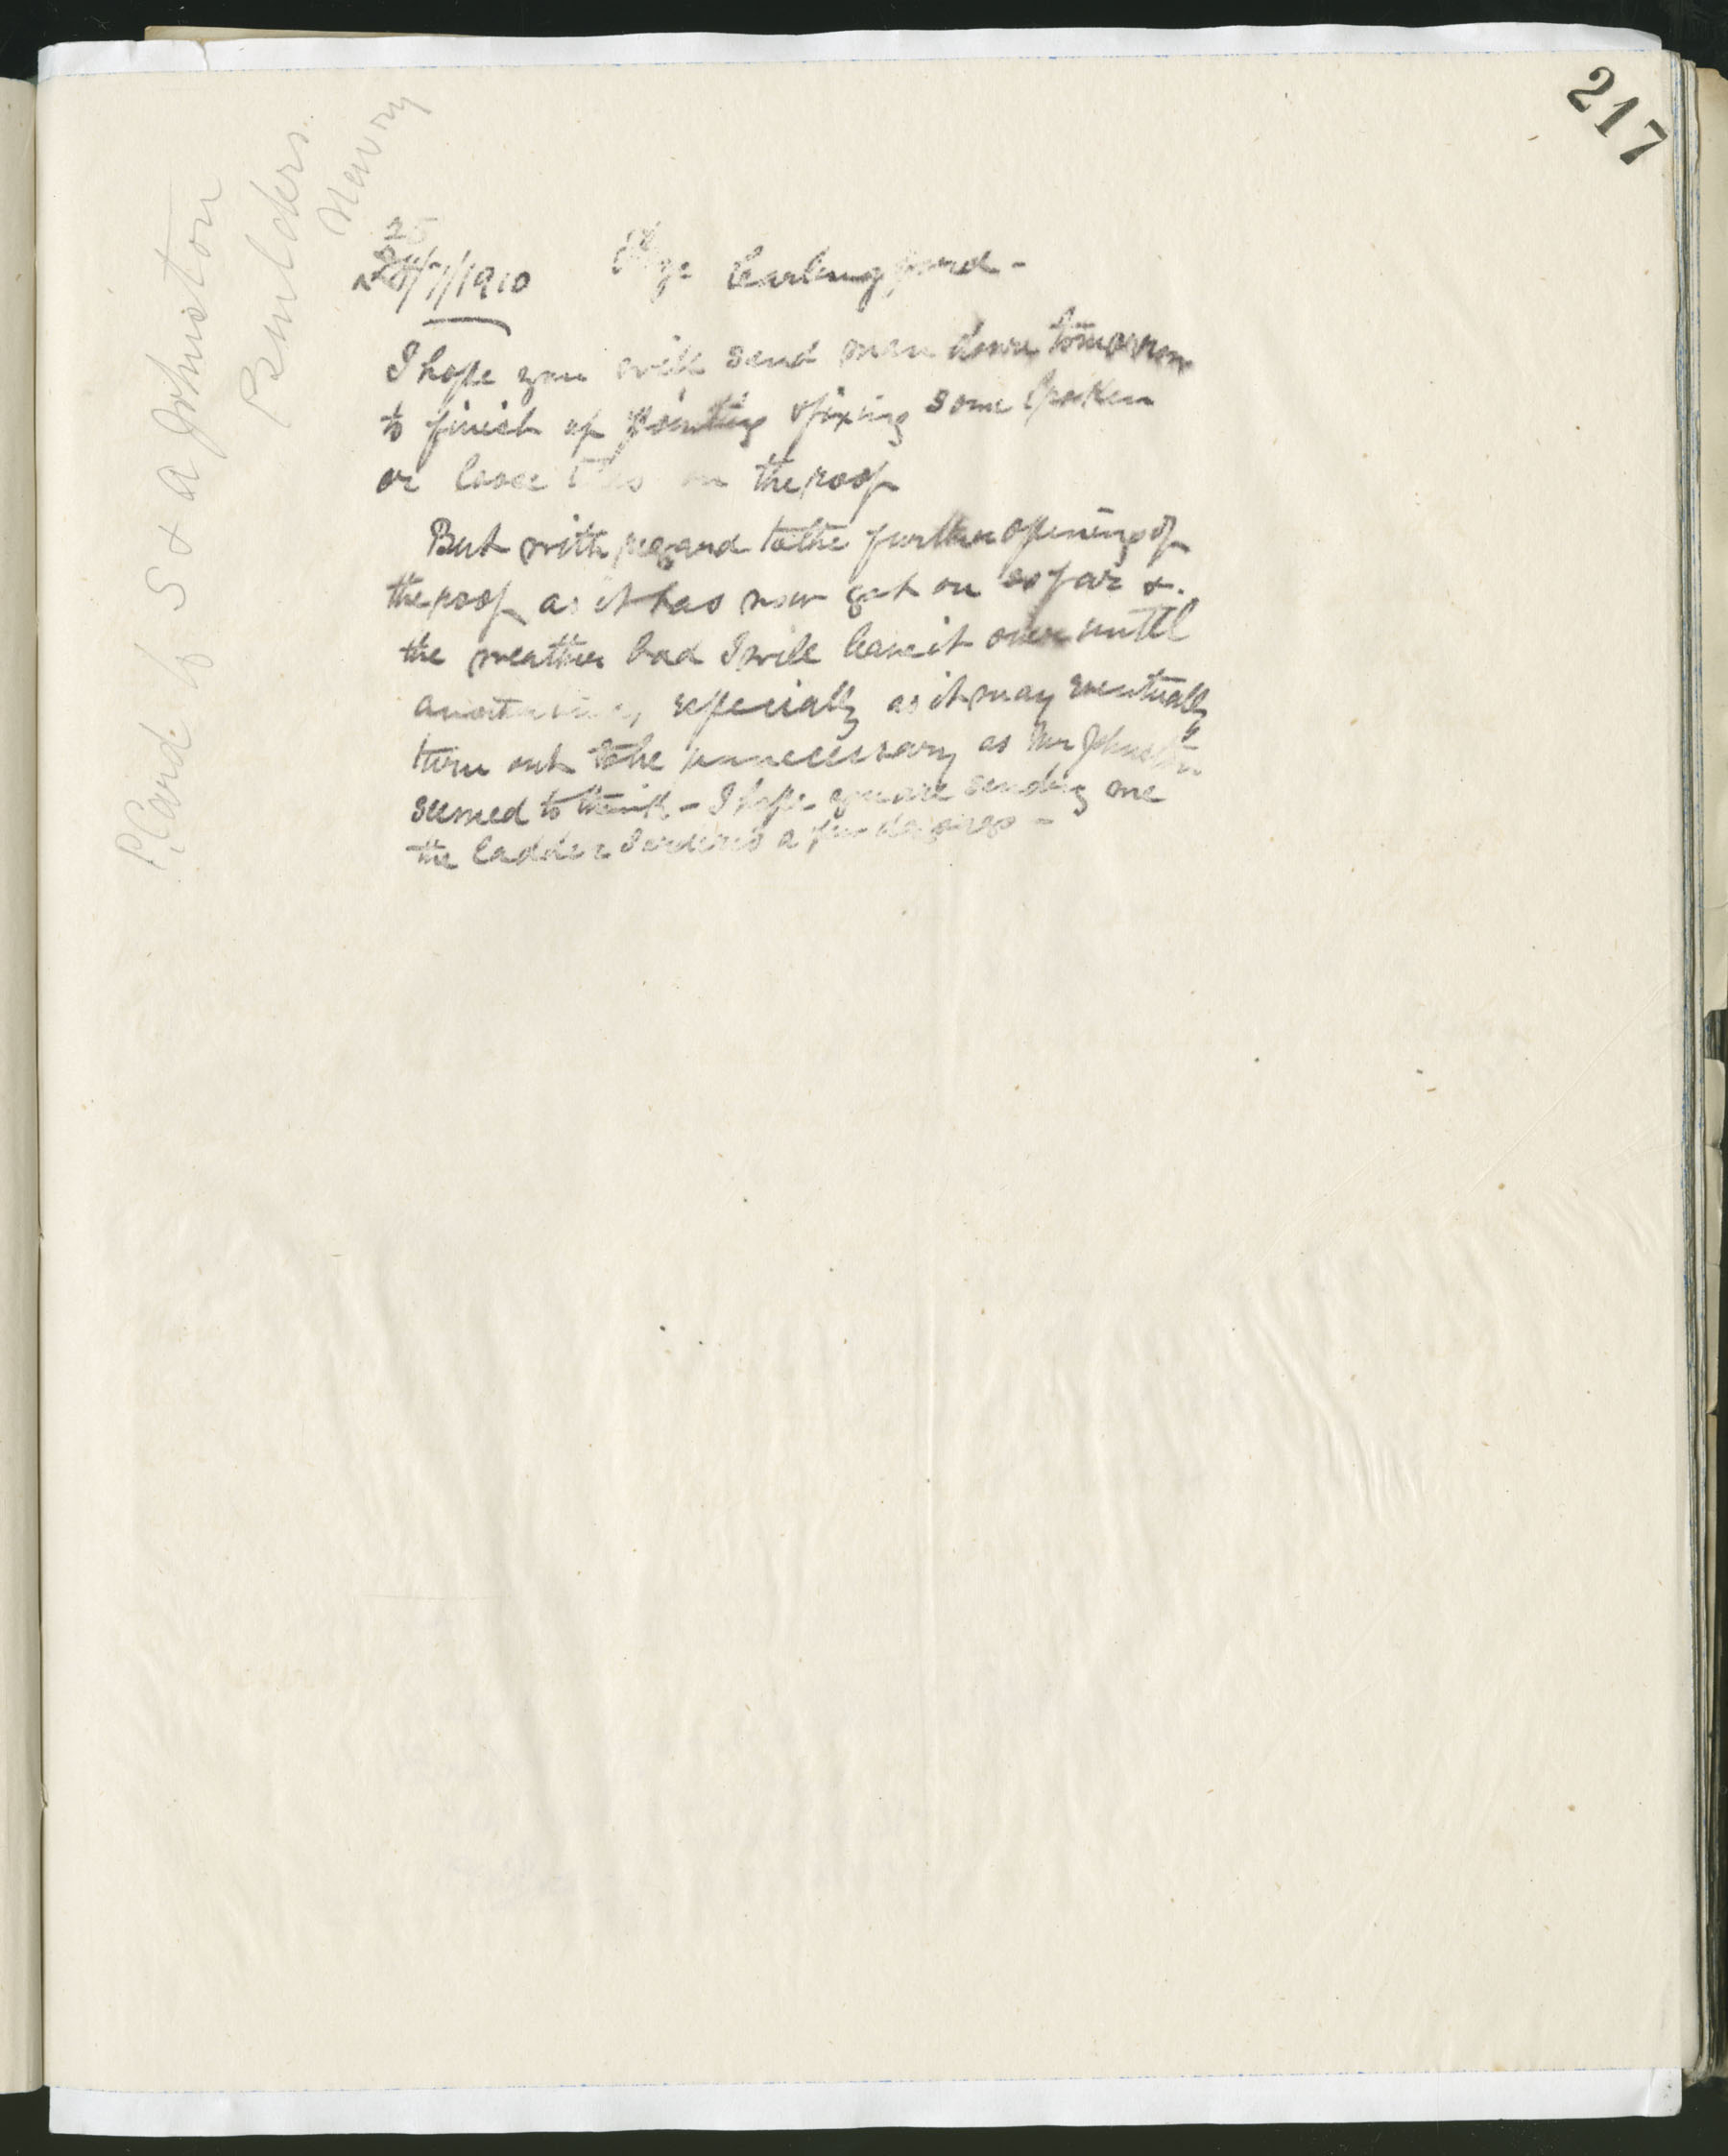 217
P. Card to S & A Johnston
Builders.
Newry
25
24/7/1910 Carlingford -
I hope you will send men down tomorrow
to finish up pointing & fixing some broken
or loose tiles on the roof
But with regard to the further opening of
the roof as it has now got on so far &.
the weather bad I will leave it over until
especially as it may eventually
turn out to be unnecessary as Mr Johnston
seemed to think - I hope you are sending me
the ladder I ordered a few days ago -